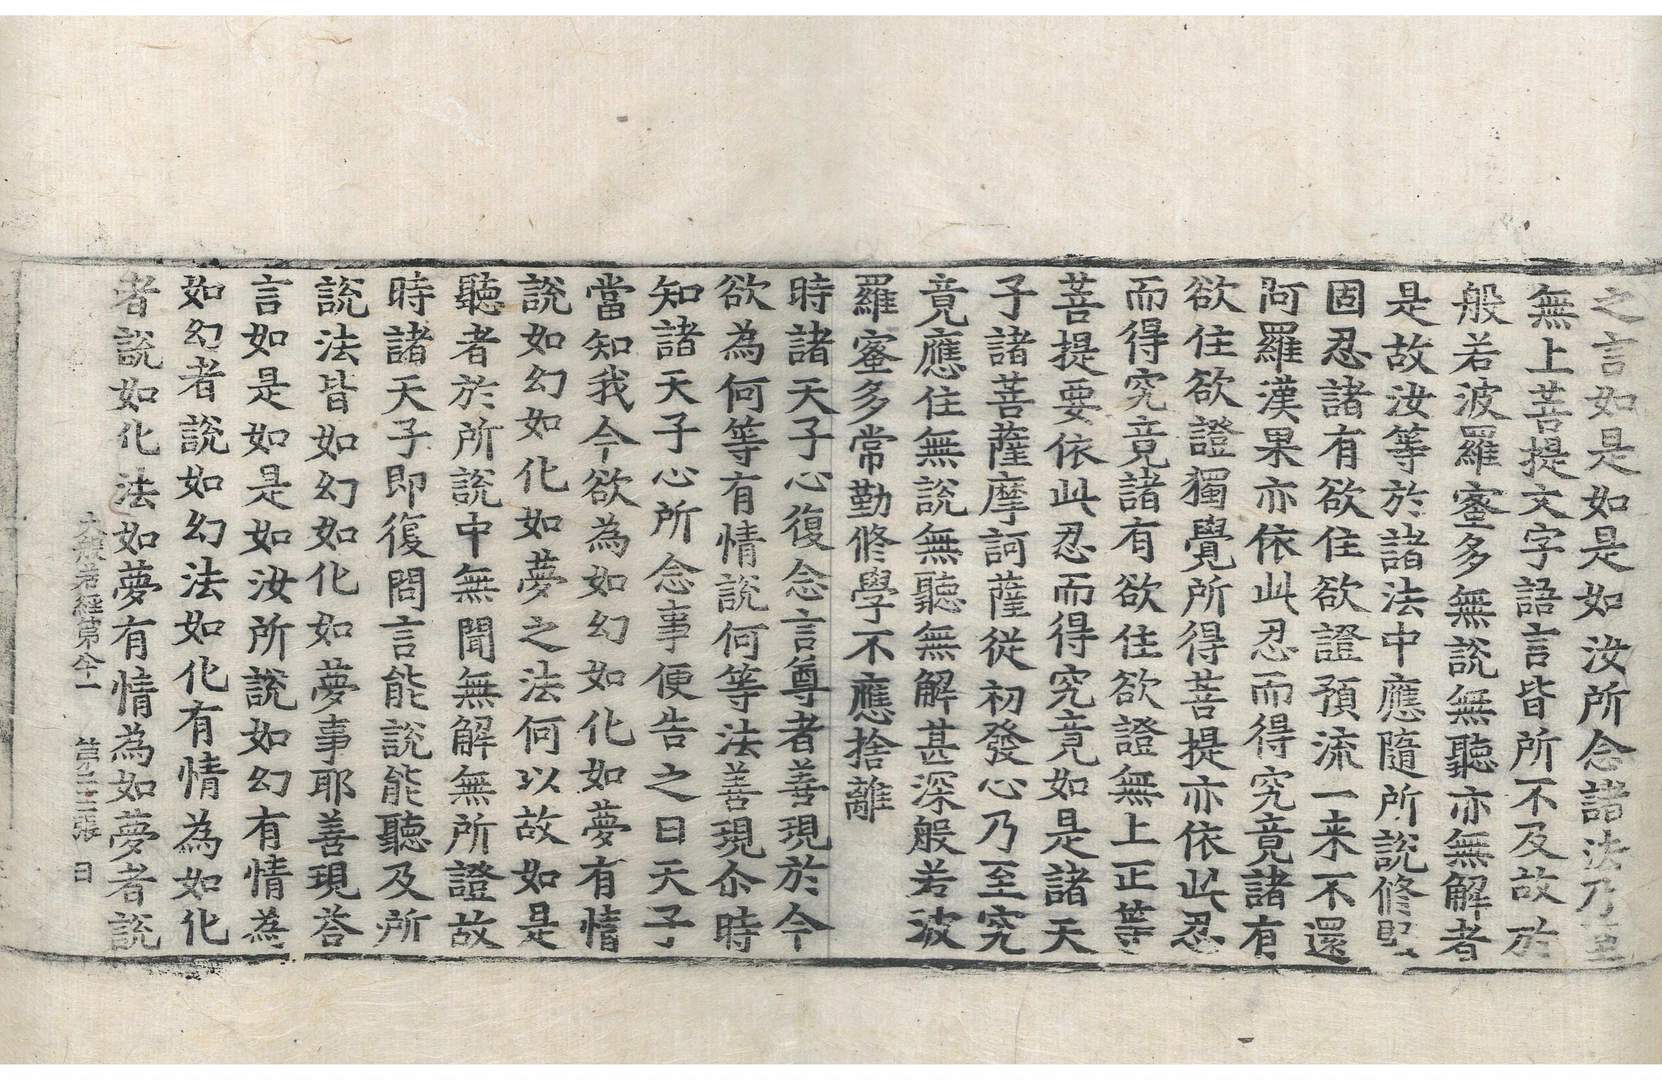 之言如是如是如汝所念諸法乃至
無上菩提文字語言皆所不及故於
般若波羅蜜多無說無聽亦無解者
是故汝等於諸法中應隨所說修堅
固忍諸有欲住欲證預流一来不還
阿羅漢果亦依此忍而得究竟諸有
欲住欲證獨覺所得菩提亦依此忍
而得究竟諸有欲住欲證無上正等
菩提要依此忍而得究竟如是諸天
子諸菩薩摩訶薩從初發心乃至究
竟應住無說無聽無解甚深般若波
羅蜜多常勤修學不應捨離
時諸天子心復念言尊者善現於今
欲為何等有情說何等法善現尒時
知諸天子心所念事便告之曰天子
當知我今欲為如幻如化如夢有情
說如幻如化如夢之法何以故如是
聽者於所說中無聞無解無所證故
時諸天子即復問言能說能聽及所
說法皆如幻如化如夢事耶善現荅
言如是如是如汝所說如幻有情為
如幻者說如幻法如化有情為如化
者說如化法如夢有情為如夢者說
大般若經第八十一 第三張 日